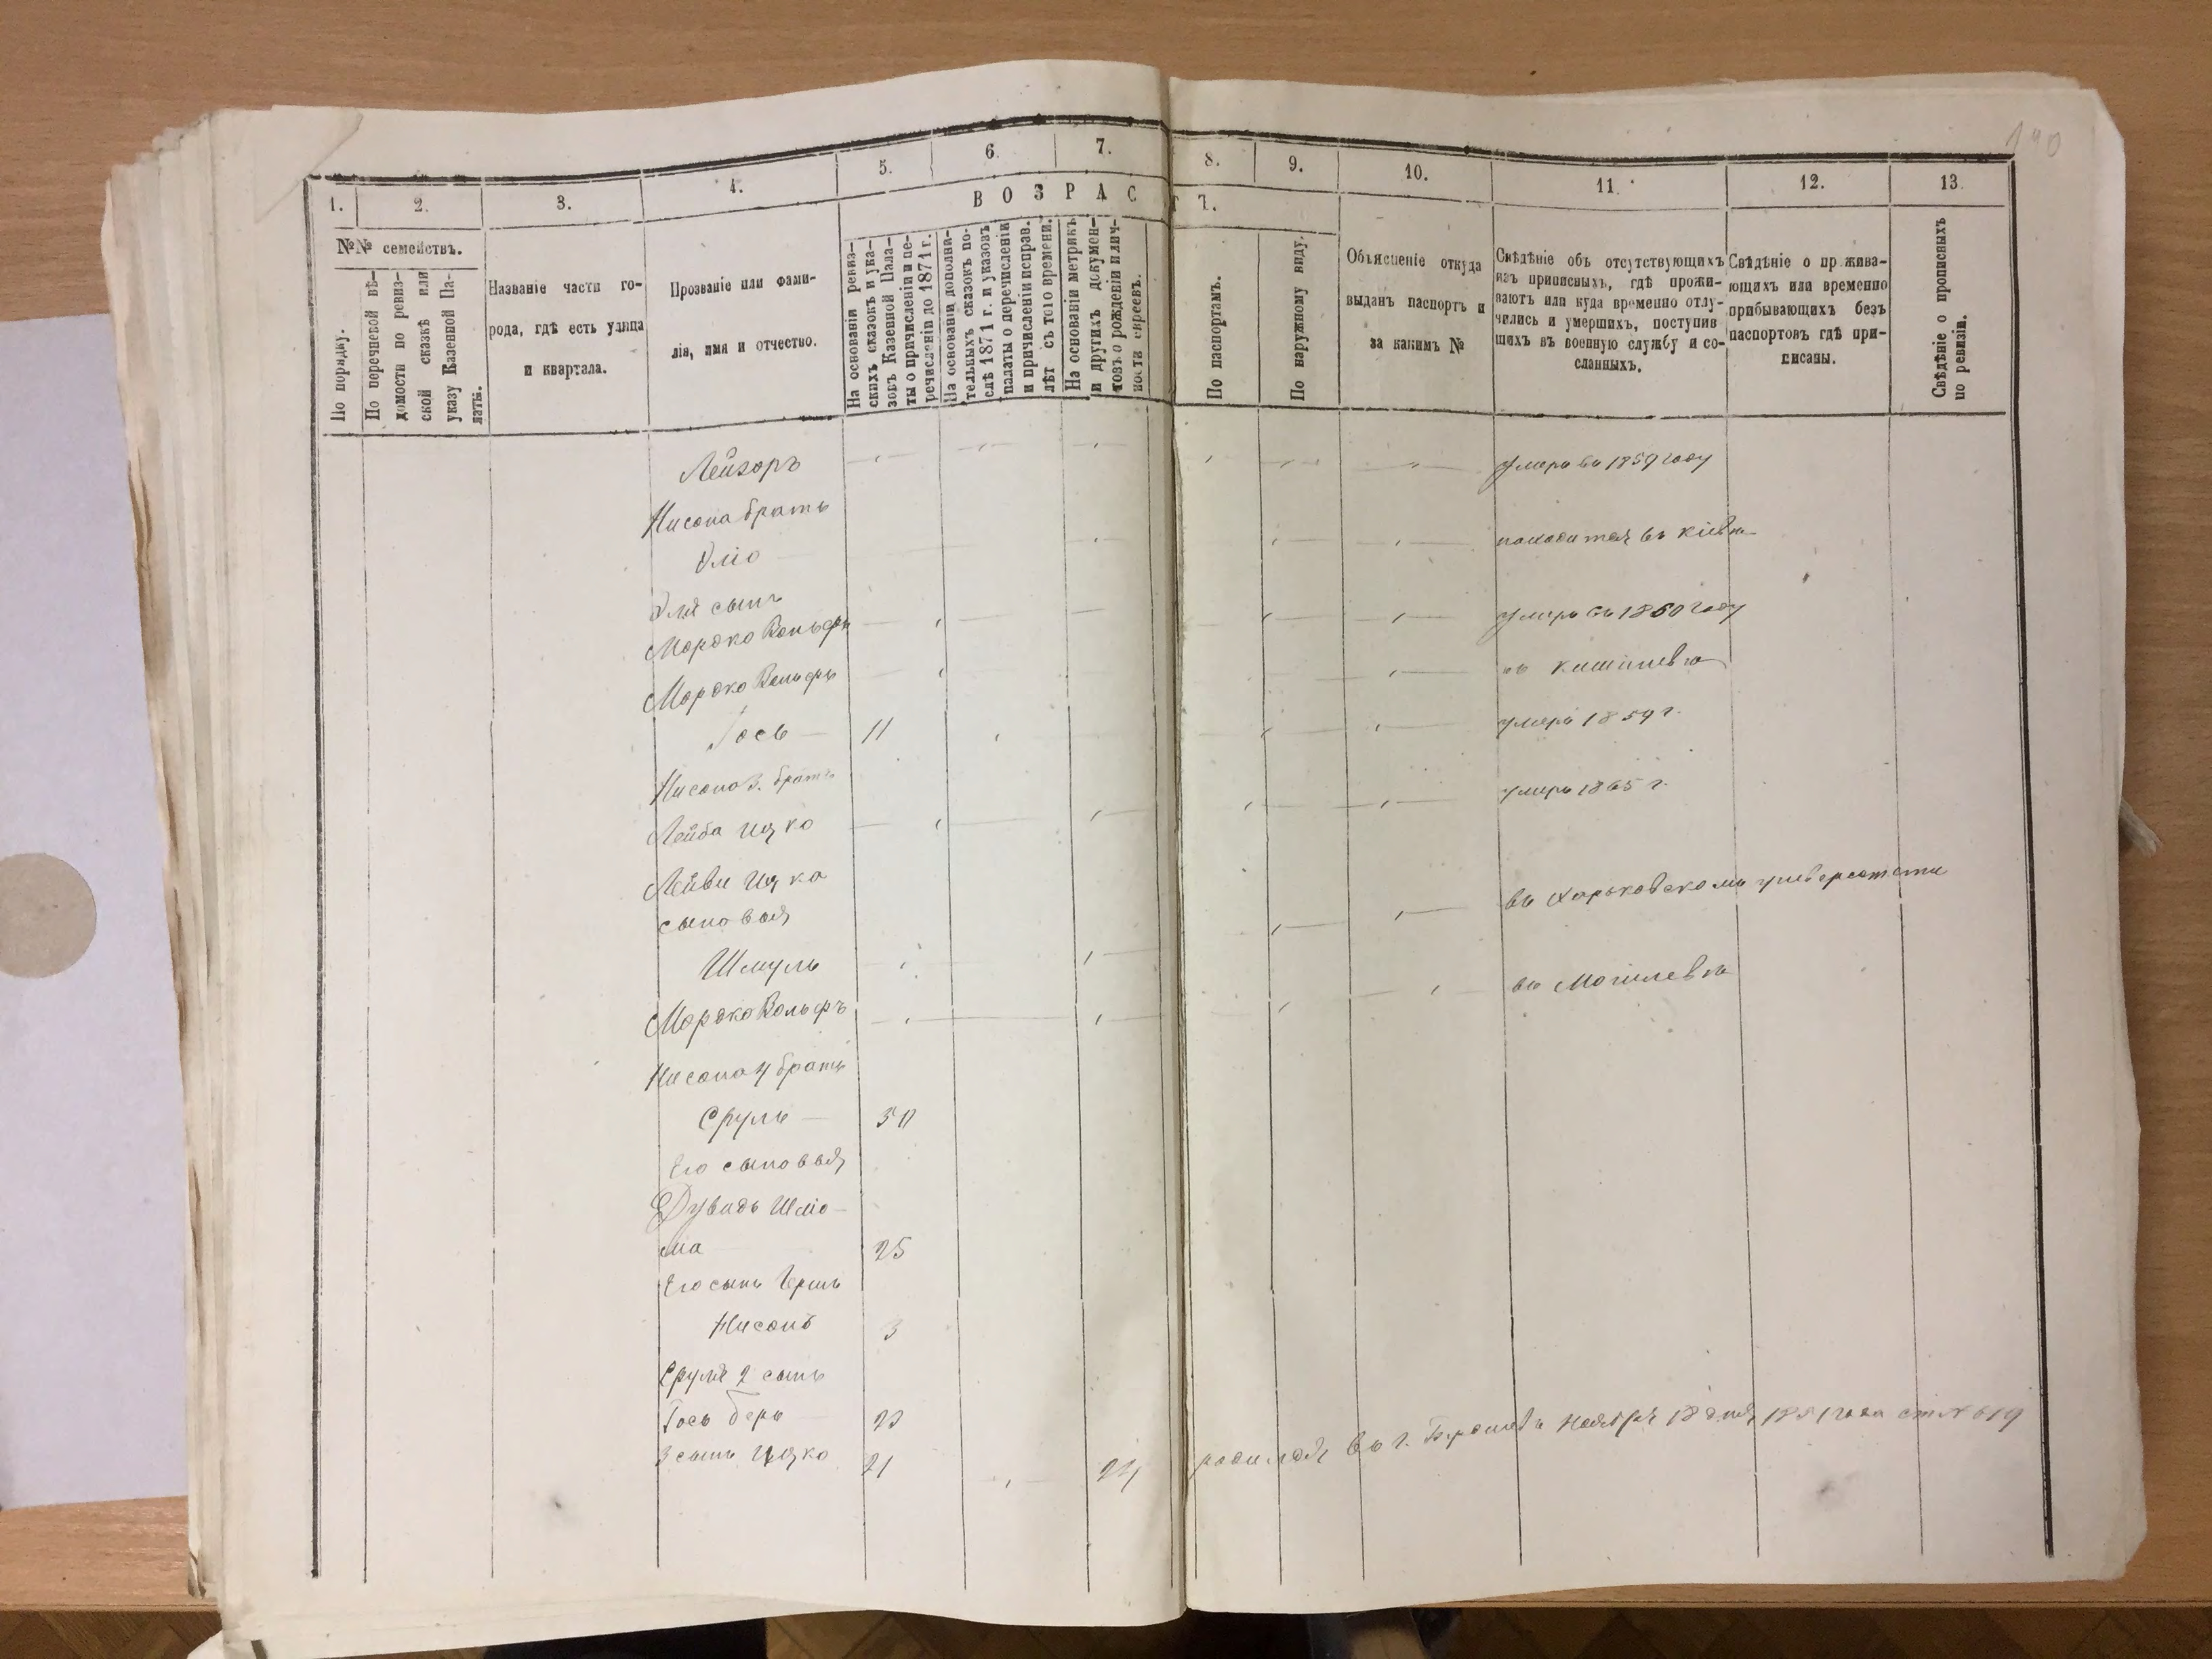 190
1.
2.
3.
4.
5.
6.
7.
8.
9.
10.
11.
12.
13.
ВОЗРАСТЪ.
№№ семействъ.
По порядку.
По перечневой вѣ-
домости по ревиз-
ской сказкѣ или
указу Казенной Па-
латы.
Названіе части го-
рода, гдѣ есть улица
и квартала.
Прозваніе или фами-
лія, имя и отчество.
На основаніи ревиз-
скихъ сказокъ и ука-
зовъ Казенной Пала-
ты о причисленіи и пе-
речисленіи до 1871 г.
На основаніи дополни-
тельныхъ сказокъ по-
слѣ 1871 г. и указовъ
палаты о перечисленіи
и причисленіи исправ.
лѣт съ того времени.
На основаніи метрикъ
и другихъ докумен-
товъ о рожденіи и лич-
ности евреевъ.
По паспортамъ.
По наружному виду.
Объясненіе откуда
выданъ паспортъ и
за какимъ №
Свѣдѣніе объ отсутствующихъ
изъ приписныхъ, гдѣ прожи-
ваютъ или куда временно отлу-
чились и умершихъ, поступив
шихъ въ военную службу и со-
сланныхъ.
Свѣдѣніе о прожива-
ющихъ или временно
прибывающихъ безъ
паспортовъ гдѣ при-
писаны.
Свѣдѣніе о прописныхъ
по ревизіи.
Лейзоръ умеръ въ 1859 году
Нисона братъ
Эліо находится въ Кіевѣ
Эля сынъ
Мордко Вольфъ умеръ въ 1860 году
Мордко Вольфъ въ Кишиневѣ
Іось 11 умеръ 1859 г.
Нисона 3. братъ умеръ 1865 г.
Лейба Ицко
Лейби Ицка
сыновья въ Харьковскомъ университети
Шмуль
Мордко Вольфъ въ Могилевѣ
Нисона 4 братъ
Сруль 50
Его сыновья
Дувидъ Шліо-
ма 25
Его сынъ Гершъ
Нисонъ 3
Сруля 2 сынъ
Іось Беръ 23
3 сынъ Ицко 21 24 родился въ г. Ноября 18 дня 1851 года ст № 619